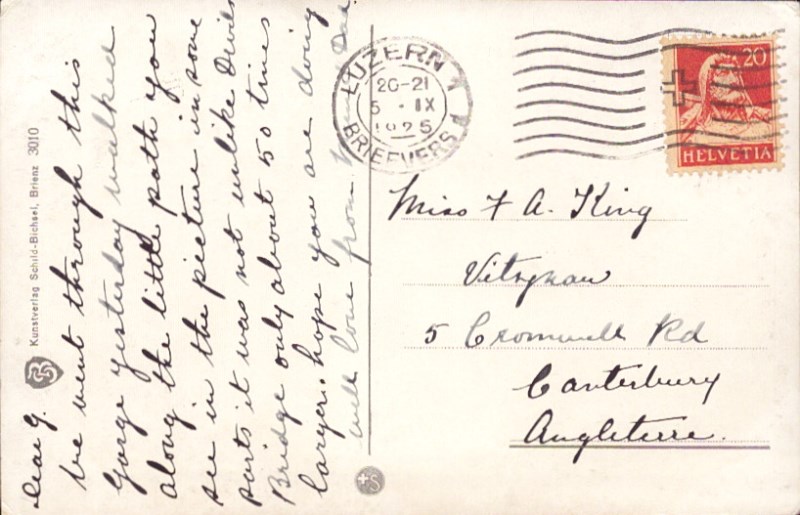 Dear G.
We went through this
Gorge yesterday walked
along the little path you
see in the picture in some
parts it was not unlike Devils
Bridge only about 50 times
larger. hope you are doing
well love from Dad
Kunstverlag Schild-Bichsel, Brienz 3010
LUZERN 1
20-21
5 · IX
1925
BRIEFVERS
20
HELVETIA
Miss F A. King
5 Cromwell Rd
Canterbury
Angleterre.